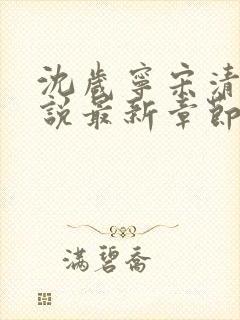 沈岁宁宋清
說最新章節
满碧乔